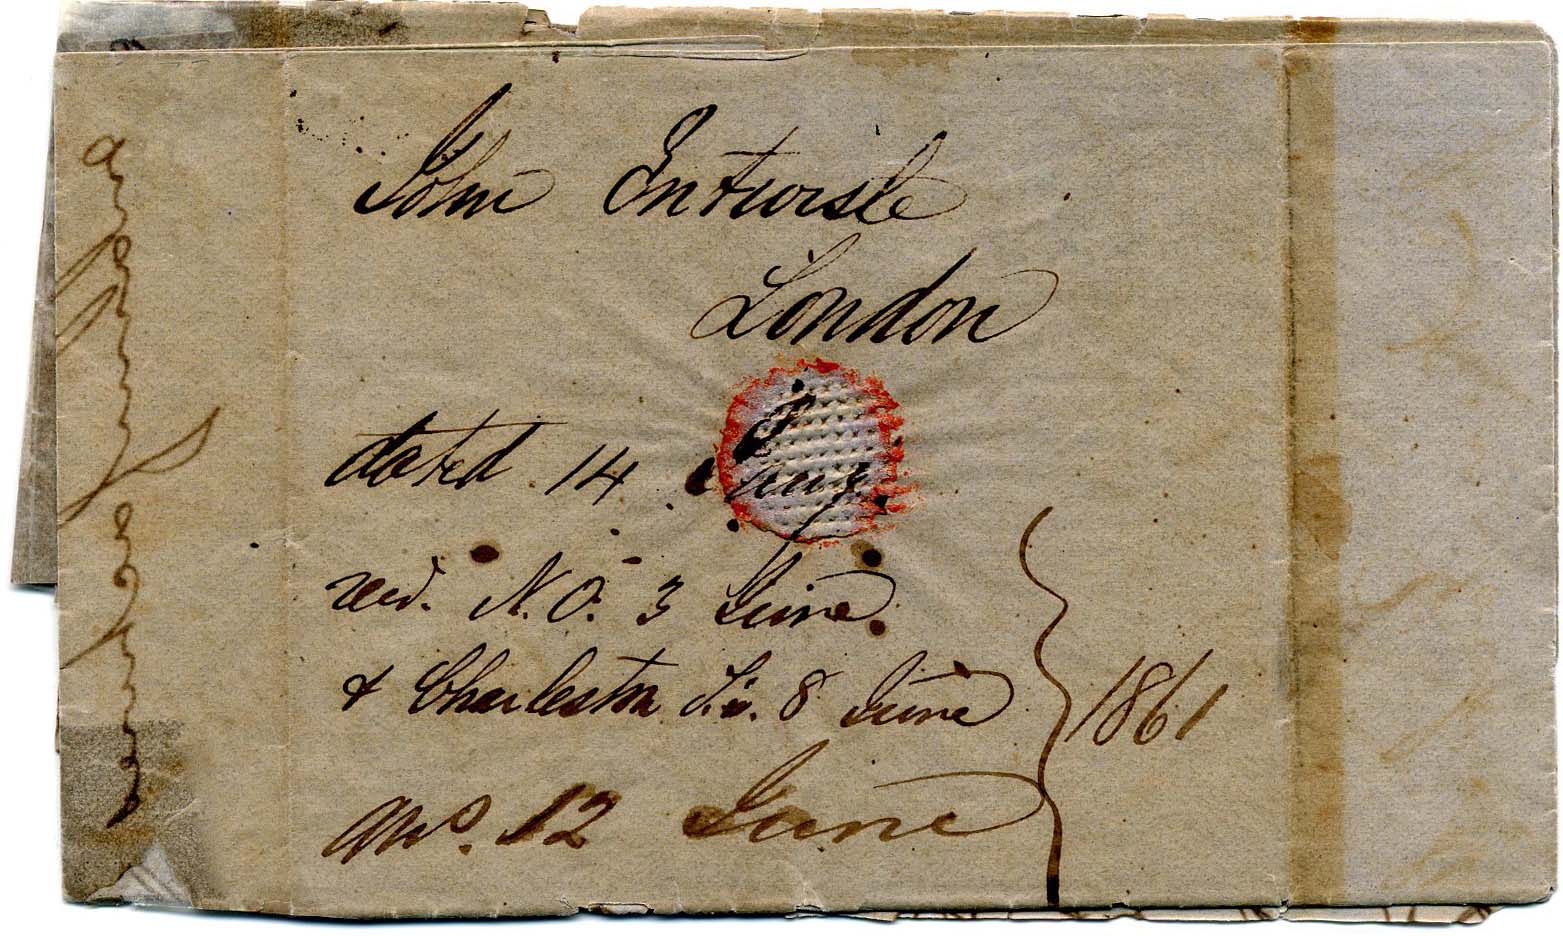 John Entwisle
London
dated 14 May
recd. N.O. 3 June
& Charleston S.C. 8 June
ans. 12 June
1861